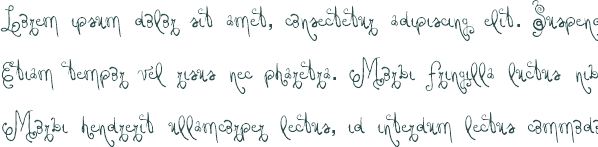 Lorem ipsum dolor sit amet, consectetur adipiscing elit.
Etiam tempor vel risus nec pharetra. Morbi fringilla luctus
Morbi hendrerit ullamcorper lectus, id interdum lectus